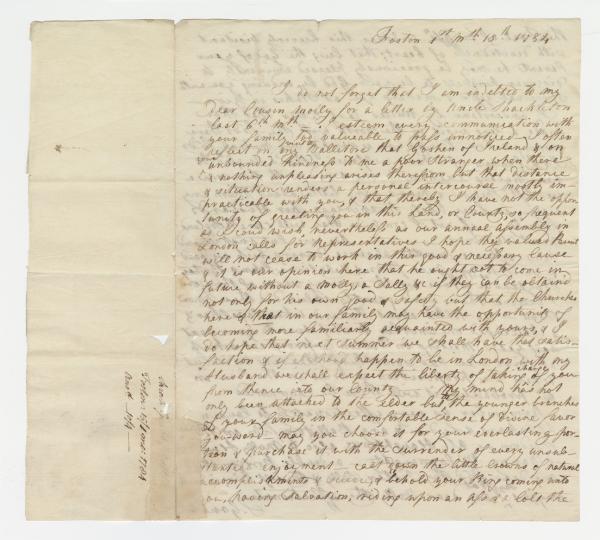 Foston 1st Mth 13th 1784
I do not forget that I am indebted to my
Dear Cousin Molly for a letter by Uncle Shackleton
last 6th Mth I esteem every communication with
your family too valuable to pass unnoticed I often
reflect on my visit to Ballitore that Goshen of Ireland & on
your unbounded kindness to me a poor Stranger when there
& nothing unpleasing arises therefrom but that distance
& situation renders a personal intercourse mostly im-
practicable with you, & that thereby I have not the oppor
tunity of greeting you in this Land, or County, so frequent
as I could wish, nevertheless as our annual assembly in
London calls for Representatives I hope thy valued Parent
will not cease to work in this good & necessary Cause
& it is our opinion here that he ought not to come in
future without a Molly a Sally &c if they can be obtaind
not only for his own good & safety but that the Churches
here & that in our family may have the opportunity of
becoming more familiarly acquainted with yours, & I
do hope that next summer we shall have that satis-
faction & if I happen to be in London with my
Husband we shall expect the liberty of taking charge of you
from thence into our County my mind has not
only been attached to the Elder but the younger branches
of your family in the comfortable sense of Divine favor
youward may you choose it for your everlasting por-
tion & purchase it with the surrender of every unsub-
stantial enjoyment cast down the little crowns of natural
accomplishments & science, & behold your King coming unto
you, having Salvation, riding upon an Ass & a Colt the
Sara
Foston 13th 1mo: 1784